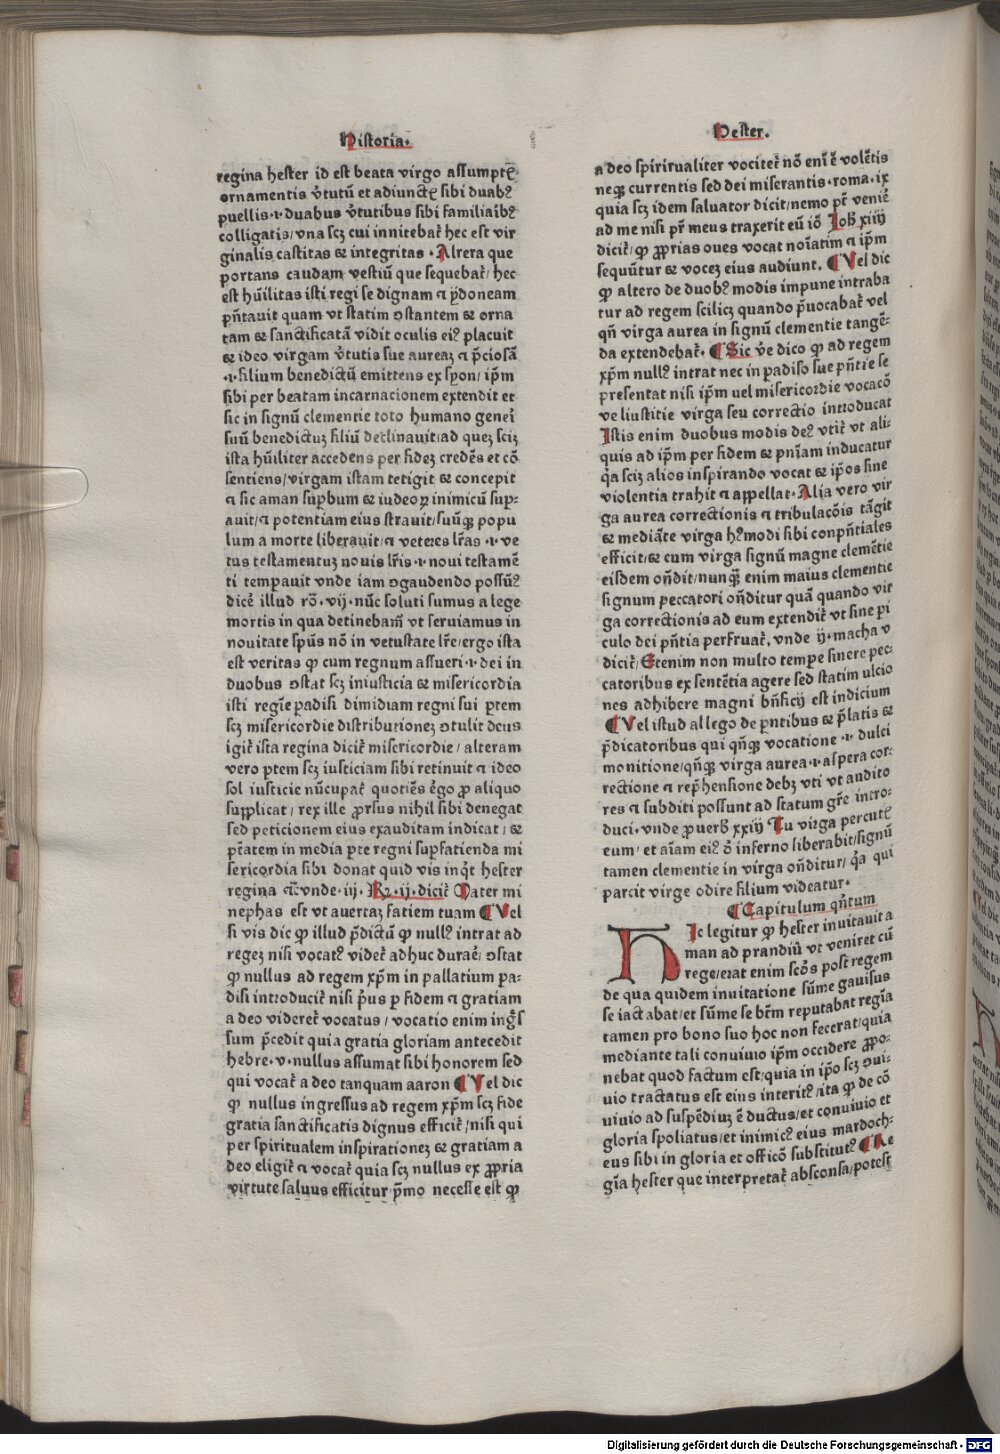 Historia.
regina hester id est beata virgo assumptꝭ
ornamentis v̓tutū et adiunctꝭ sibi duabꝰ
puellis ·i· duabus v̓tutibus sibi familiaribꝰ
colligatis/ vna scꝫ cui innitebat̃ hec est vir
ginalis castitas ⁊ integritas · Altera que
portans caudam vestiū que sequebat̃/ hec
est hūilitas isti regi se dignam ⁊ ydoneam
pn̄tauit quam vt statim ɔstantem ⁊ orna
tam ⁊ sanctificatā vidit oculis eiꝰ placuit
⁊ ideo virgam v̓tutis sue aureaꝫ ⁊ p̄ciosā
·i· filium benedictū emittens ex syon/ ip̄m
sibi per beatam incarnacionem extendit et
sic in signū clementie toto humano geneı̓
suū benedictuꝫ filiū declinauit/ad queꝫ sciꝫ
ista hūiliter accedens per fideꝫ credēs et cō
sentiens/ virgam istam tetigit ⁊ concepit
⁊ sic aman sup̱bum ⁊ iudeoꝝ inimicū sup̱-
auit/⁊ potentiam eius strauit/ suūqꝫ popu
lum a morte liberauit/⁊ veteres lr̄as ·i· ve
tus testamentuꝫ nouis lr̄is ·i· noui testamē
ti temp̱auit vnde iam ɔgaudendo possūꝰ
dice̓ illud ro. vij · nūc soluti sumus a lege
mortis in qua detinebam̃ vt seruiamus in
nouitate sp̄us nō in vetustate lr̄e/ ergo ista
est veritas ꝙ cum regnum assueri ·i· dei in
duobus ɔstat scꝫ iniusticia ⁊ misericordia
isti regīe padisi dimidiam regni sui p̱tem
scꝫ misericordie distributioneꝫ ɔtulit deus
igit̃ ista regina dicit̃ misericordie/ alteram
vero p̱tem scꝫ iusticiam sibi retinuit ⁊ ideo
sol iusticie nūcupat̃ quotiēs e̓go ꝓ aliquo
supplicat/ rex ille ꝓrsus nihil sibi denegat
sed peticionem eius exauditam indicat/ ⁊
p̄tatem in media p̱te regni sup̱ fatienda mi
sericordia sibi donat quid vis inqͥt hester
regina ⁊c̄ vnde ·iij· Rꝫ ·ij· dicit̃ Mater mi
nephas est vt auertaꝫ fatiem tuam ¶ Vel
si vis dic ꝙ illud p̄dictū ꝙ nullꝰ intrat ad
regeꝫ nisi vocatꝰ videt̃ adhuc durare̓/ ɔstat
ꝙ nullus ad regem xp̄m in pallatium pa-
disi introducit̃ nisi p̓us ꝑ fidem ⁊ gratiam
a deo videret̃ vocatus/ vocatio enim ingͣs
sum p̄cedit quia gratia gloriam antecedit
hebre · v · nullus assumat sibi honorem sed
qui vocat̃ a deo tanquam aaron ¶ Vel dic
ꝙ nullus ingressus ad regem xp̄m scꝫ fide
gratia sanctificatis dignus efficit̃/ nisi qui
per spiritualem inspirationeꝫ ⁊ gratiam a
deo eligit̃ ⁊ vocat̃ quia scꝫ nullus ex ꝓpria
virtute saluus efficitur p̄mo necesse est ꝙ
Hester.
a deo spiritualiter vocitet̃ nō eni ē volētis
neqꝫ currentis sed dei miserantis · roma · ix
quia scꝫ idem saluator dicit/ nemo pt̄ veniē
ad me nisi pr̄ meus traxerit eū iō Joh̄ xiiij
dicit̃/ ꝙ ꝓprias oues vocat noı̄atim ⁊ ip̄m
sequūtur ⁊ voceꝫ eius audiunt. ¶ Vel dic
ꝙ altero de duobꝰ modis impune intraba
tur ad regem scilicꝫ quando p̄uocabat̃ vel
qn̄ virga aurea in signū clementie tangē-
da extendebat̃. ¶ Sic v̓e dico ꝙ ad regem
xp̄m nullꝰ intrat nec in padiso sue pn̄tie se
presentat nisi ip̄m vel misericordie vocacō
ve l iustitie virga seu correctio introducat
Istis enim duobus modis deꝰ vtit̃ vt ali-
quis ad ip̄m per fidem ⁊ pn̄iam inducatur
qͣa sciꝫ alios inspirando vocat ⁊ ip̄os sine
violentia trahit ⁊ appellat · Alia vero vir
ga aurea correctionis ⁊ tribulacōis tāgit
⁊ mediāte virga hꝰmodi sibi conpn̄tiales
efficit/ ⁊ cum virga signū magne clemētie
eisdem on̄dit/ nunqͣꝫ enim maius clementie
signum peccatori on̄ditur quā quando vir
ga correctionis ad eum extendit̃ vt sine pi
culo dei pn̄tia perfruat̃. vnde ij · macha v
dicit̃/ Etenim non multo tempe sinere pec-
catoribus ex sentētia agere sed statim ulcio
nes adhibere magni bn̄ficij est indicium
¶ Vel istud allego de p̱ntibus ⁊ p̄latis ⁊
p̄dicatoribus qui qn̄qꝫ vocatione ·i· dulci
monitione/ qn̄qꝫ virga aurea ·i· aspera cor-
rectione ⁊ rep̄hensione debꝫ vti vt audito
res ⁊ subditi possunt ad statum gr̄e intro-
duci · vnde ꝓuerb̄ xxiij Tu virga percutꝭ
eum/ et aı̄am eiꝰ d̓ inferno liberabit/ signū
tamen clementie in virga on̄ditur/ qͣa qui
parcit virge odire filium videatur.
¶ Capitulum qn̄tum
HIc legitur ꝙ hester inuitauit a
man ad prandiū vt veniret cū
rege/ erat enim scd̓s post regem
de qua quidem inuitatione sūme gauisus
se iactabat/ et sūme se btm̄ reputabat regı̄a
tamen pro bono suo hoc non fecerat/ quia
mediante tali conuiuio ip̄m occidere ꝓpo-
nebat quod factum est/ quia in ip̄o scꝫ ɔui-
uio tractatus est eius interitꝰ/ ita ꝙ de cō
uiuio ad suspēdiuꝫ ē ductus/ et conuiuio et
gloria spoliatus/ et inimicꝰ eius mardoch-
eus sibi in gloria et officō substitutꝰ ¶ Re
gı̄a hester que interpretat̃ absconsa/ potest
Digitalisierung gefördert durch die Deutsche Forschungsgemeinschaft - DFG